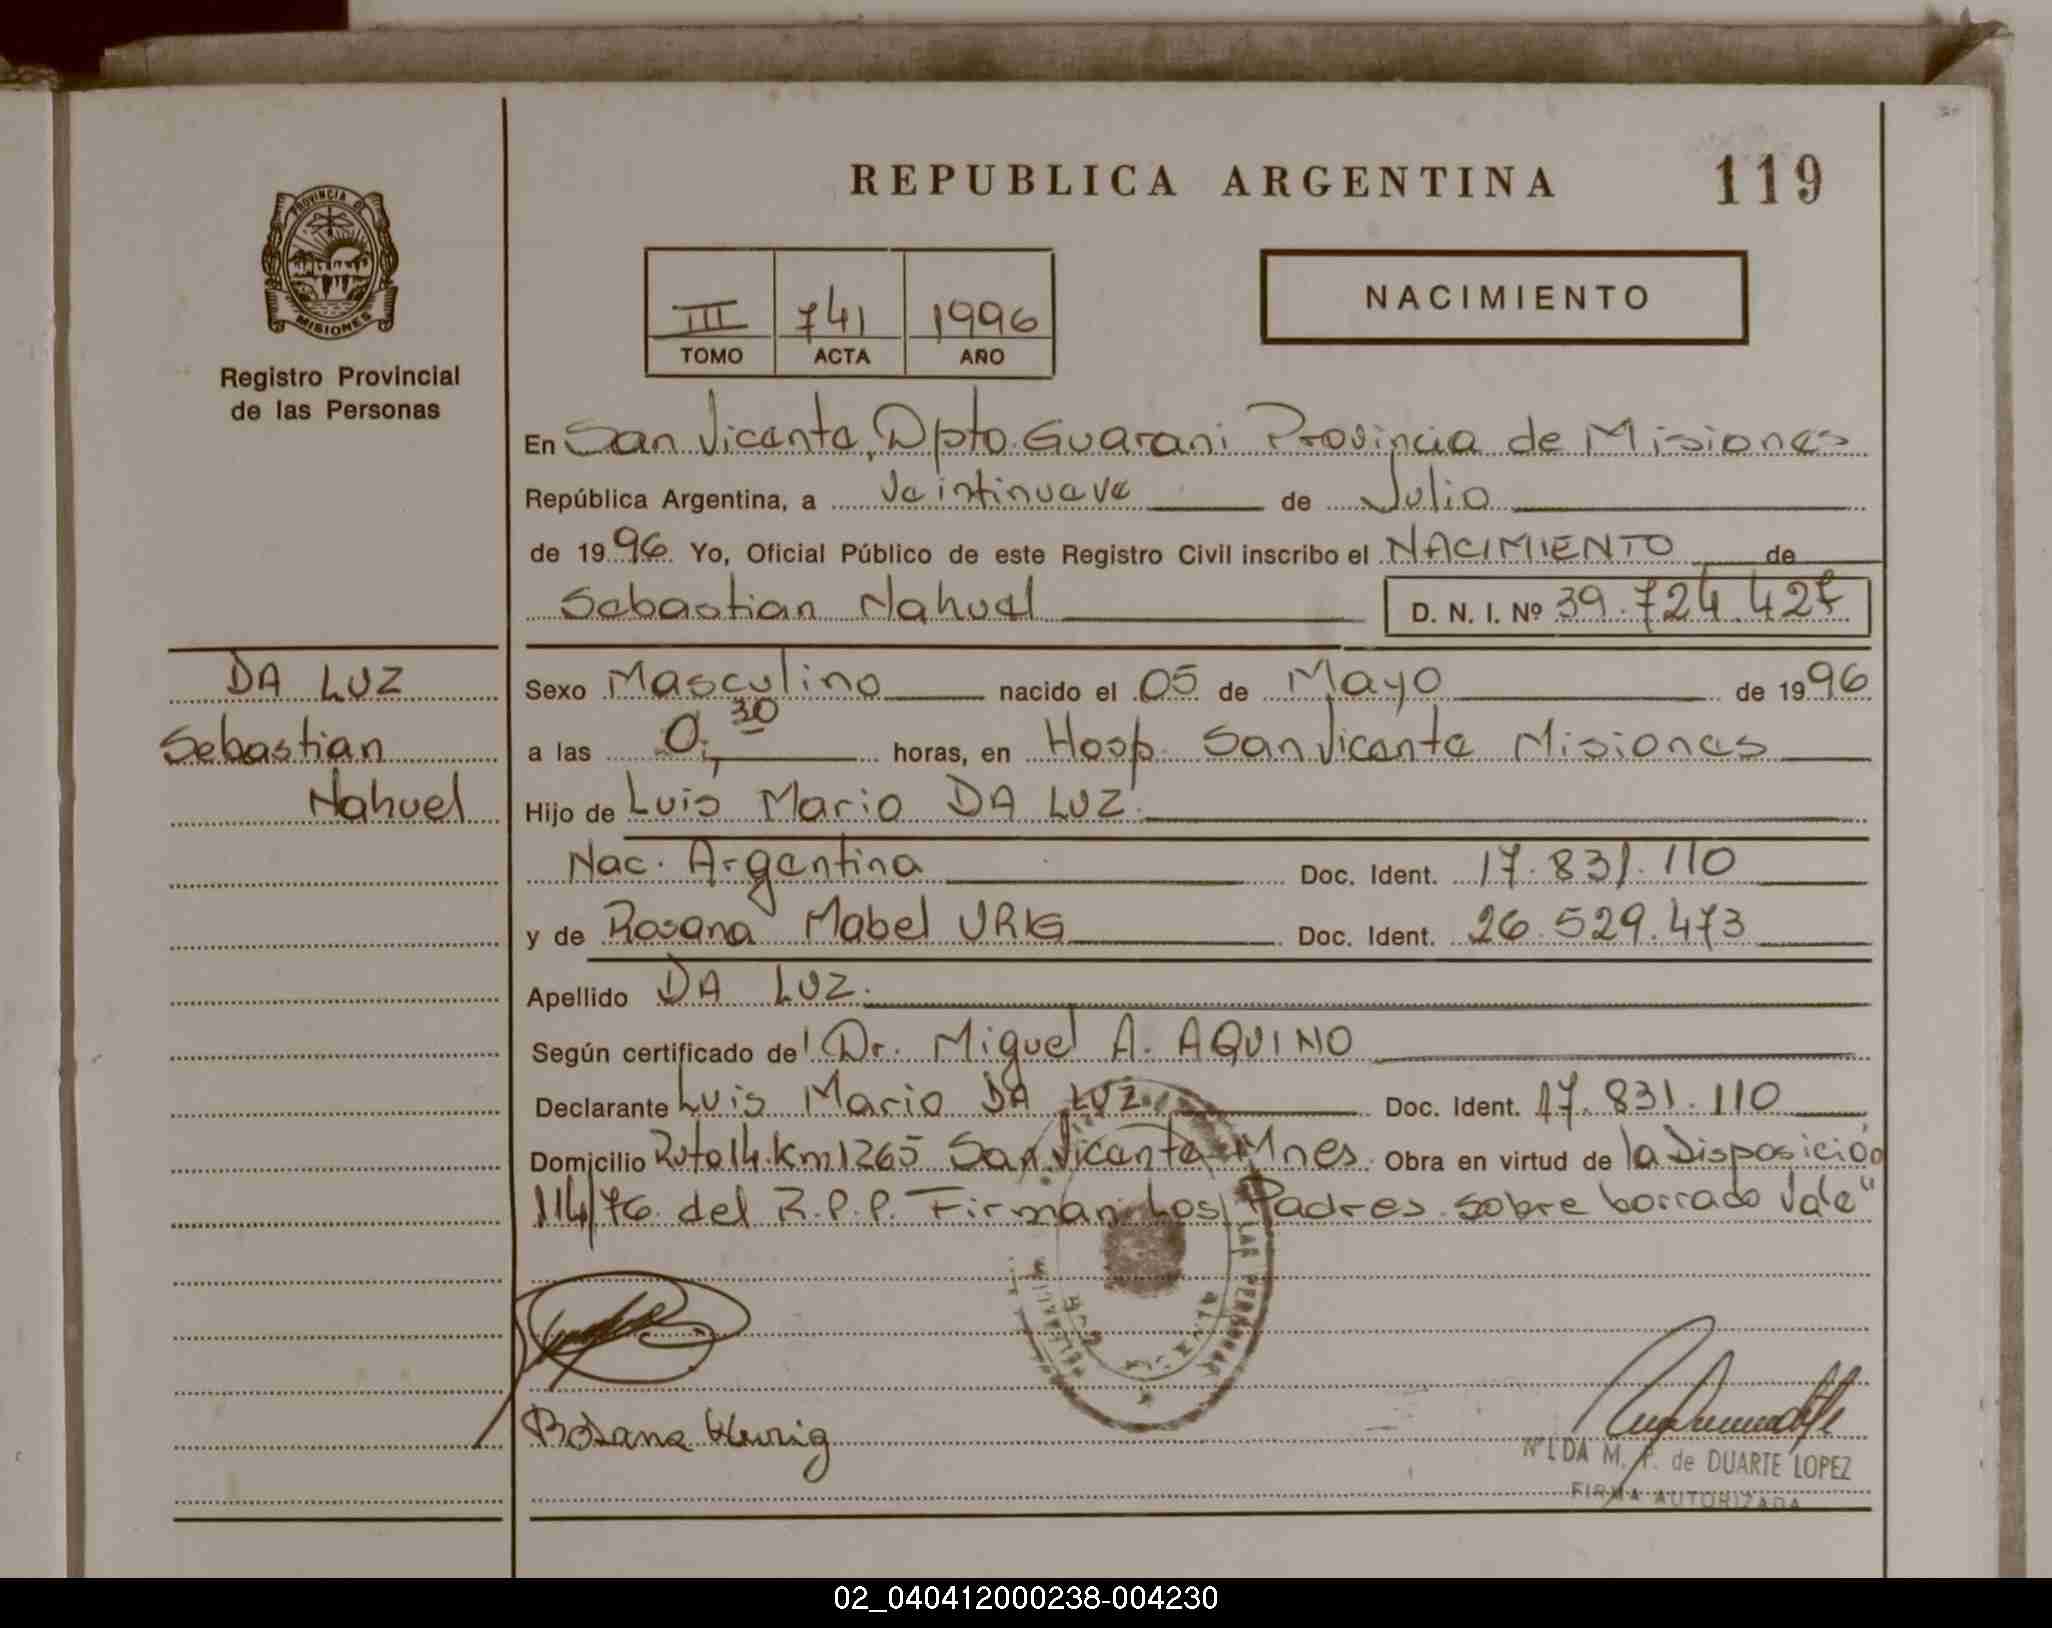 REPUBLICA ARGENTINA
119
PROVINCIA DE
MISIONES
Registro Provincial
de las Personas
III 741 1996
TOMO ACTA AÑO
NACIMIENTO
En San Vicente, Dpto. Guarani Provincia de Misiones
República Argentina, a veintinueve de Julio
de 1996 Yo, Oficial Público de este Registro Civil inscribo el NACIMIENTO de
Sebastian Nahuel D. N. I. Nº 39.724.427
DA LUZ
Sebastian
Nahuel
Sexo Masculino nacido el 05 de Mayo de 1996
a las 0,30 horas, en Hosp. San Vicente Misiones
Hijo de Luis Mario DA LUZ.
Nac. Argentina Doc. Ident. 17.831.110
y de Rosana Mabel URIG Doc. Ident. 26.529.473
Apellido DA LUZ.
Según certificado de Dr. Miguel A. AQUINO
Declarante Luis Mario DA LUZ Doc. Ident. 17.831.110
Domicilio Ruta 14.Km 1265 San Vicente Mnes. Obra en virtud de la Disposición
114/76 del R.P.P. Firman Los Padres. sobre borrado vale"
LAS PERSONAS
Rosana
M. P. de DUARTE LOPEZ
FIRMA AUTORIZADA
02_040412000238-004230